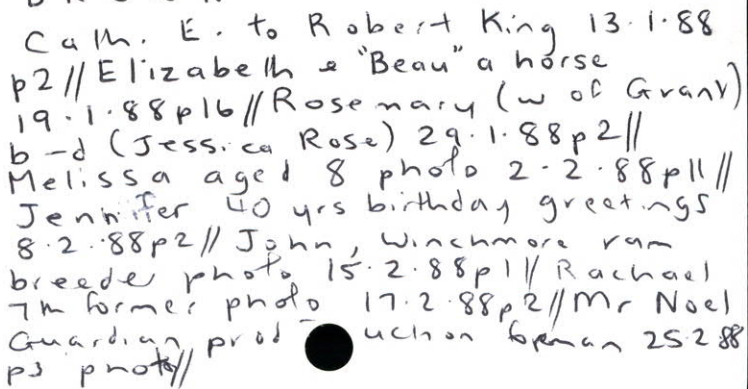 Cath. E. to Robert King 13.1.88
p2//Elizabeth & "Beau" a horse
19.1.88p16//Rosemary (w of Grant)
b-d (Jessica Rose) 29.1.88p2//
Melissa aged 8 photo 2.2.88p11//
Jennifer 40 yrs birthday greetings
8.2.88p2// John, Winchmore ram
breeder photo 15.2.88p1// Rachael
7m former photo 17.2.88p2//Mr Noel
Guardian production foreman 25.2.88
p3 photo//